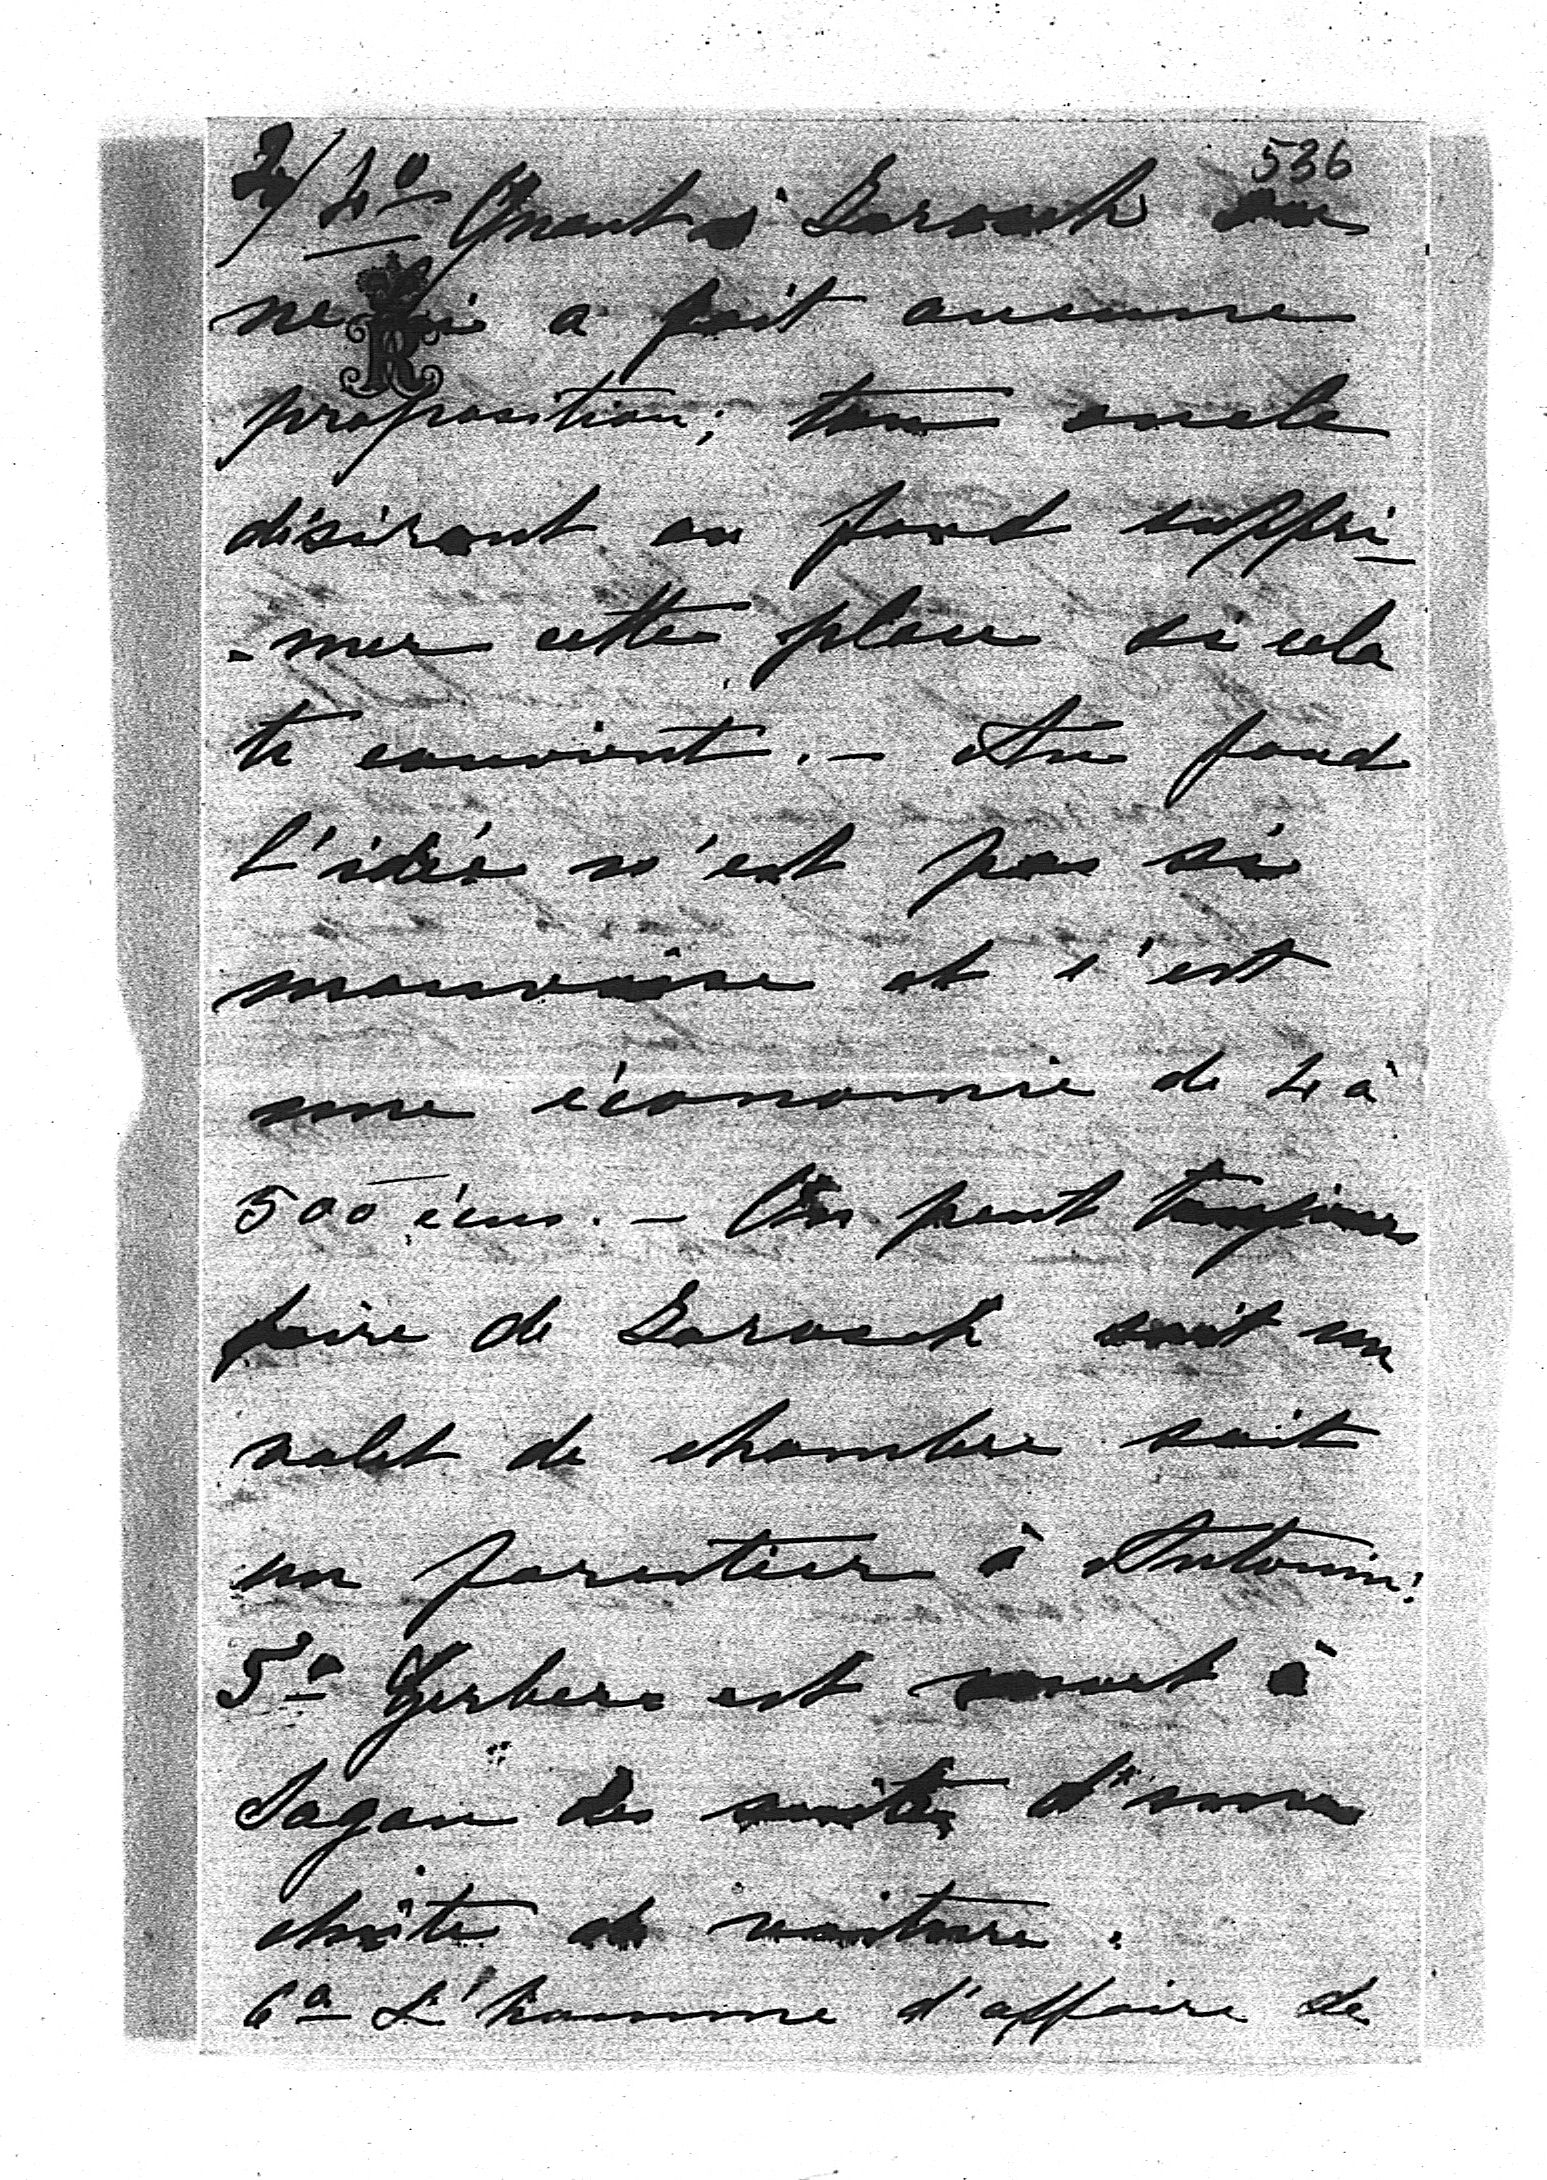 536
2/ 4º Quant à Larosch on
ne lui a fait aucune
R
proposition; ton oncle
désirant au fond suppri-
-mer cette place si cela
te convient. - Au fond
l'idée n'est pas si
mauvaise et c'est
une économie de 4 à
500 écus. - On peut toujours
faire de Larosch soit un
valet de chambre soit
un forestier à Antonin!
5º Gerbere est mort à
Sagan des suites d'une
chûte de voiture.
6º L'homme d'affaire de